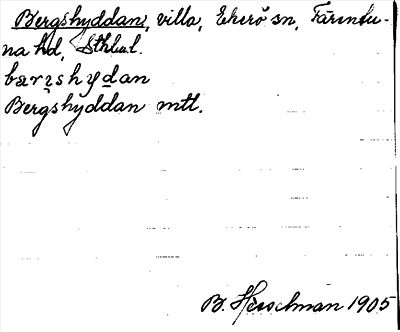 Bergshyddan, villa, Ekerö sn, Färentu-
na hd, Sthlm l.
bærɿshydan
Bergshyddan mtl.
B. Hesselman 1905